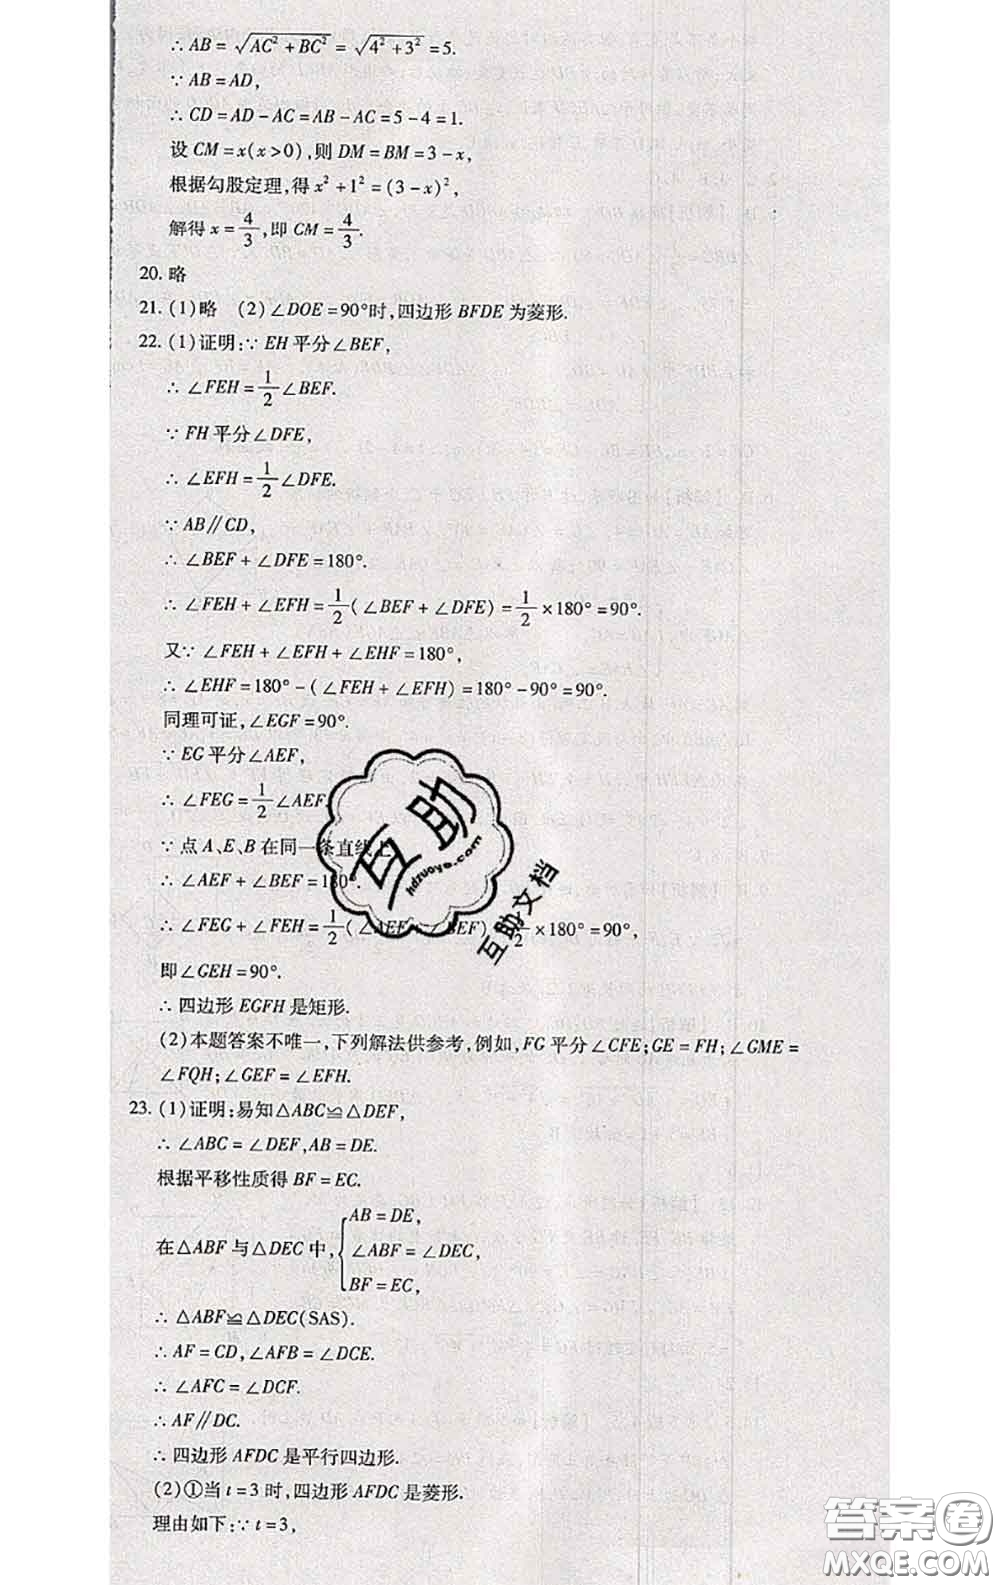 ∴ AB = √(AC² + BC²) = √(4² + 3²) = 5.
∵ AB = AD,
∴ CD = AD - AC = AB - AC = 5 - 4 = 1.
设 CM = x(x > 0),则 DM = BM = 3 - x,
根据勾股定理,得 x² + 1² = (3 - x)²,
解得 x = 4/3,即 CM = 4/3.
20. 略
21. (1)略 (2)∠DOE = 90°时,四边形 BFDE 为菱形.
22. (1)证明:∵ EH 平分∠BEF,
∴ ∠FEH = 1/2 ∠BEF.
∵ FH 平分∠DFE,
∴ ∠EFH = 1/2 ∠DFE.
∵ AB∥CD,
∴ ∠BEF + ∠DFE = 180°.
∴ ∠FEH + ∠EFH = 1/2(∠BEF + ∠DFE) = 1/2 × 180° = 90°.
又∵ ∠FEH + ∠EFH + ∠EHF = 180°,
∴ ∠EHF = 180° - (∠FEH + ∠EFH) = 180° - 90° = 90°.
同理可证,∠EGF = 90°.
∵ EG 平分∠AEF,
∴ ∠FEG = 1/2 ∠AEF.
∵ 点 A、E、B 在同一条直线上
∴ ∠AEF + ∠BEF = 180°.
∴ ∠FEG + ∠FEH = 1/2(∠AEF + ∠BEF) 1/2 × 180° = 90°,
即∠GEH = 90°.
∴ 四边形 EGFH 是矩形.
(2)本题答案不唯一,下列解法供参考,例如,FG 平分∠CFE;GE = FH;∠GME =
∠FQH;∠GEF = ∠EFH.
23. (1)证明:易知△ABC≌△DEF,
∴ ∠ABC = ∠DEF,AB = DE.
根据平移性质得 BF = EC.
在△ABF 与△DEC 中,{AB = DE,
∠ABF = ∠DEC,
BF = EC,
∴ △ABF≌△DEC(SAS).
∴ AF = CD,∠AFB = ∠DCE.
∴ ∠AFC = ∠DCF.
∴ AF∥DC.
∴ 四边形 AFDC 是平行四边形.
(2)①当 t = 3 时,四边形 AFDC 是菱形.
理由如下:∵ t = 3,
互助
hdzuoye.com
互助文档
答案圈
MXQE.COM